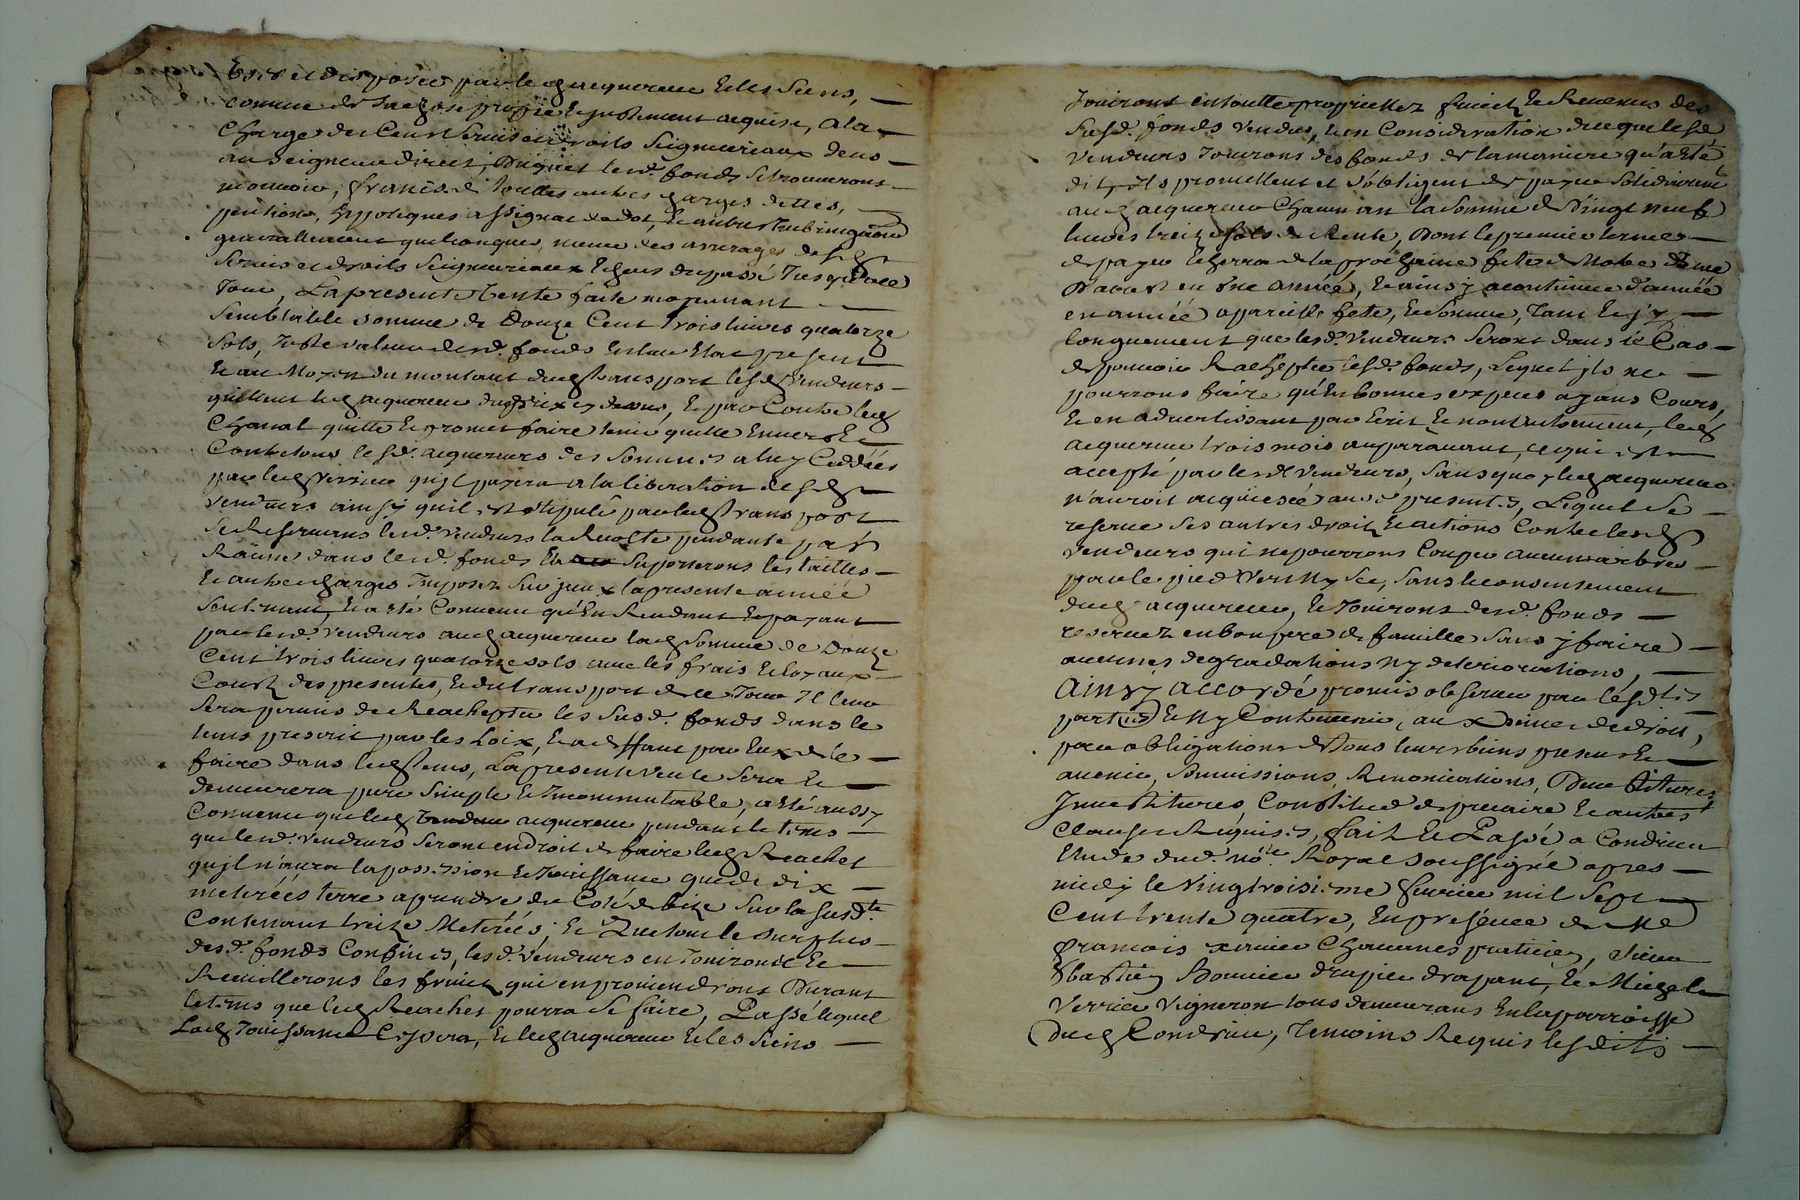 et disposer par led acquereur et les siens,
comme de sa chose propre et justement acquise, a la
charge des cens servis et droits seigneuriaux deus
au seigneur direct, duquel lesd. fonds se trouveront
mouvoir, francs de touttes autres charges dettes,
pentions, hyppoteques assignat de dot, et autres
generallement quelconques, meme des arrerages desd
servis et droits seigneuriaux echeus du passé jusqu'a ce
jour, La presente vente faite moyennant
semblable somme de Douze Cent trois livres quatorze
sols, juste valeur desd. fonds en leur Etat present
Et au moyen du montant dud transport lesd vendeurs
quittent led acquereur dud prix cy dessus, et par contre led
Chanal quitte et promet faire tenir quitte Envers et
Contre tous lesd. acquereurs des sommes a luy Ceddées
par led Verrier qu'il payera a la liberation desd
vendeurs ainsy qu'il est stipulé par led transport
se Reservans lesd. vendeurs la Recolte pendante par
Racine dans lesd. fonds et suporterons les tailles
Et autres charges imposez sur jceux la presente année
seulement, Et a eté Convenu qu'En Rendant et payant
par lesd. vendeurs aud acquereur lad somme de Douze
Cent trois livres quatorze sols avec les frais et loyaux
Couts des presentes, et du transport de ce jour Il leur
sera permis de Reachepter les susd. fonds dans le
tems prescrit par les Loix, et a deffaut par Eux de le
faire dans led tems, La presente vente sera et
demeurera pure simple et Incommutable, a eté aussy
Convenu que led acquereur pendant le tems
que lesd. vendeurs seront en droit de faire led Reachet
qu'jl n'aura la possession et Jouissance que de dix
meterées terre a prendre du Coté de bize sur la susd.te
Contenant treize Meterées, Et Que tout le surplus
desd. fonds Confinés, lesd. vendeurs en Jouiront et
Recuillerons les fruits qui en proviendront Durant
le tems que led Reachet pourra se faire, Passé lequel
Lad Jouissance Cessera, Et led acquereur et les siens
Jouiront en toutte proprietez fruits et Revenus des
susd. fonds vendus, et en Consideration de ce que lesd
vendeurs Jouirons des fonds de la maniere qu'a eté
dit, jls promettent et s'obligent de payer solidairement
aud acquereur chacun an la somme de Vingt neuf
livres treize sols de Rente, Dont le premier terme
de payer Echerra de la prochaine fete de Notre Dame
D'aoust en une année, Et ainsy a continuer d'année
en année a pareille fete, et somme, tant et sy
longuement que lesd. vendeurs seront dans le Cas
de pouvoir Reachepter lesd. fonds, Lequel jls ne
pourrons faire qu'En bonnes especes ayans Cours,
Et en advertissant par Ecrit et non autrement, led
acquereur trois mois auparavant, ce qui est
accepté par lesd vendeurs, sans quoy led acquereur
n'auroit acquiescé aux presentes, Lequel se
reserve ses autres droits et actions Contre lesd
vendeurs qui ne pourrons Couper aucuns arbres
par le pied Vert Ny sec, sans le consentement
dud acquereur, Et Jouirons desd. fonds
reservez en bon pere de famille sans y faire
aucunes degradations Ny deteriorations,
Ainsy accordé promis observer par lesd.tes
parties Et Ny Contrevenir, aux peines de droit,
par obligations de tous leurs biens presens et
avenir, soumissions Renonciations,
Investitures Constitut de precaire et autres
Clauses Requises, fait et Passé a Condrieu
Etude dud. No.re Royal soussigné apres
midy le Vingt troisieme fevrier mil sept
Cent trente quatre, En presence de Me
francois xavier Chavannes praticien, sieur
Sbastien Bonnier drapier drapant, et Michel
Verrier Vigneron tous demeurans En la parroisse
dud Condrieu, Temoins Requis lesdits